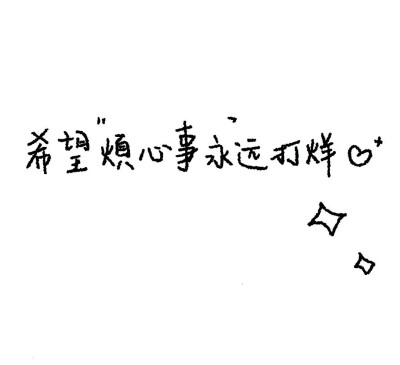 希望"煩心事"永远打烊♡